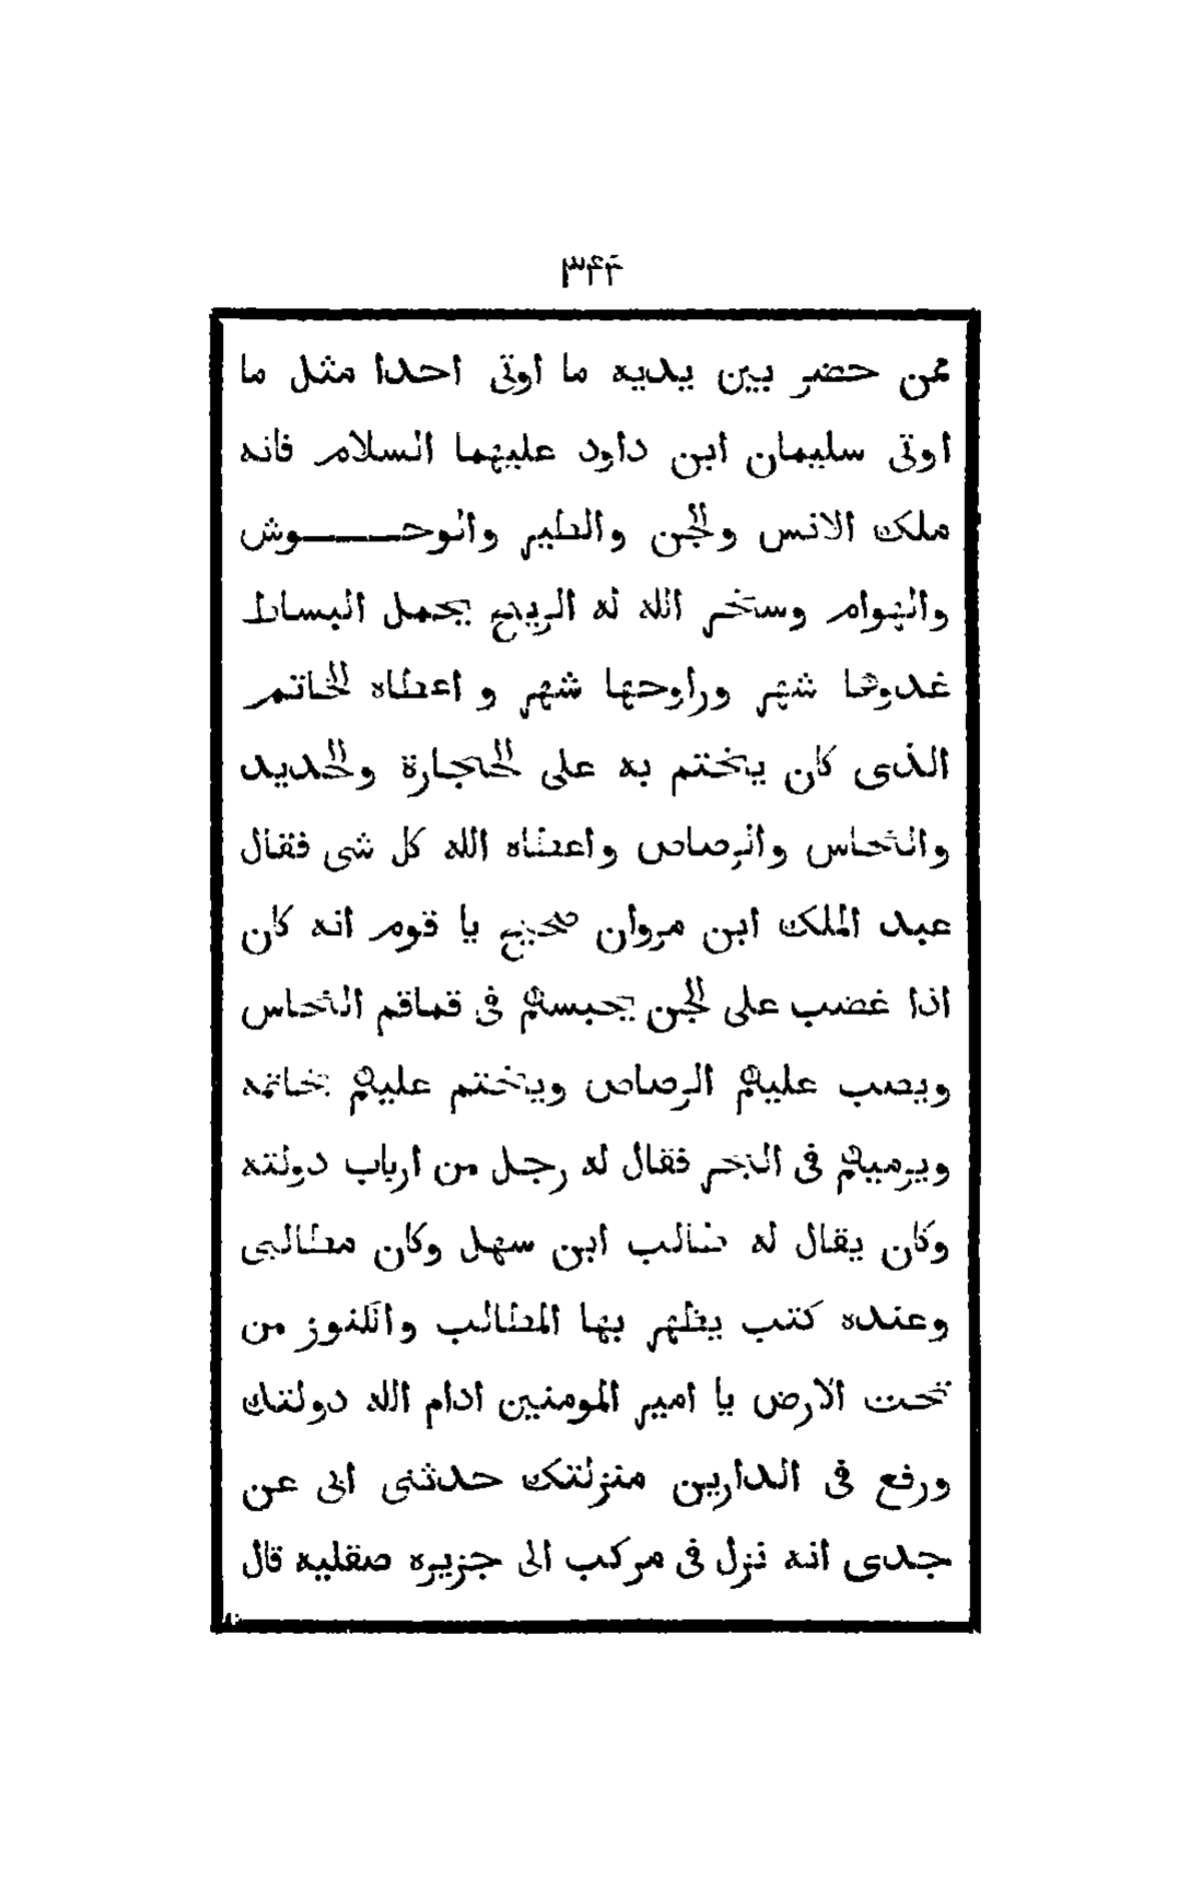 ٣۴۴
ممن حضر بين يديه ما اوتى احدا مثل ما
اوتى سليمان ابن داود عليهما السلام فانه
ملك الانس والجن والطير والوحـــــوش
والهوام وسخر الله له الريح يحمل البساط
غدوها شهر وراوحها شهر و اعطاه الخاتم
الذى كان يختم به على الحجارة والحديد
والنحاس والرصاص واعطاه الله كل شى فقال
عبد الملك ابن مروان صحيح يا قوم انه كان
اذا غضب على الجن يحبسهم فى قماقم النحاس
ويصب عليهم الرصاص ويختم عليهم بخاتمه
ويرميهم فى البحر فقال له رجل من ارباب دولته
وكان يقال له طالب ابن سهل وكان مطالبى
وعنده كتب يظهر بها المطالب والكنوز من
تحت الارض يا امير المومنين ادام الله دولتك
ورفع فى الدارين منزلتك حدثنى ابى عن
جدى انه نزل فى مركب الى جزيره صقليه قال